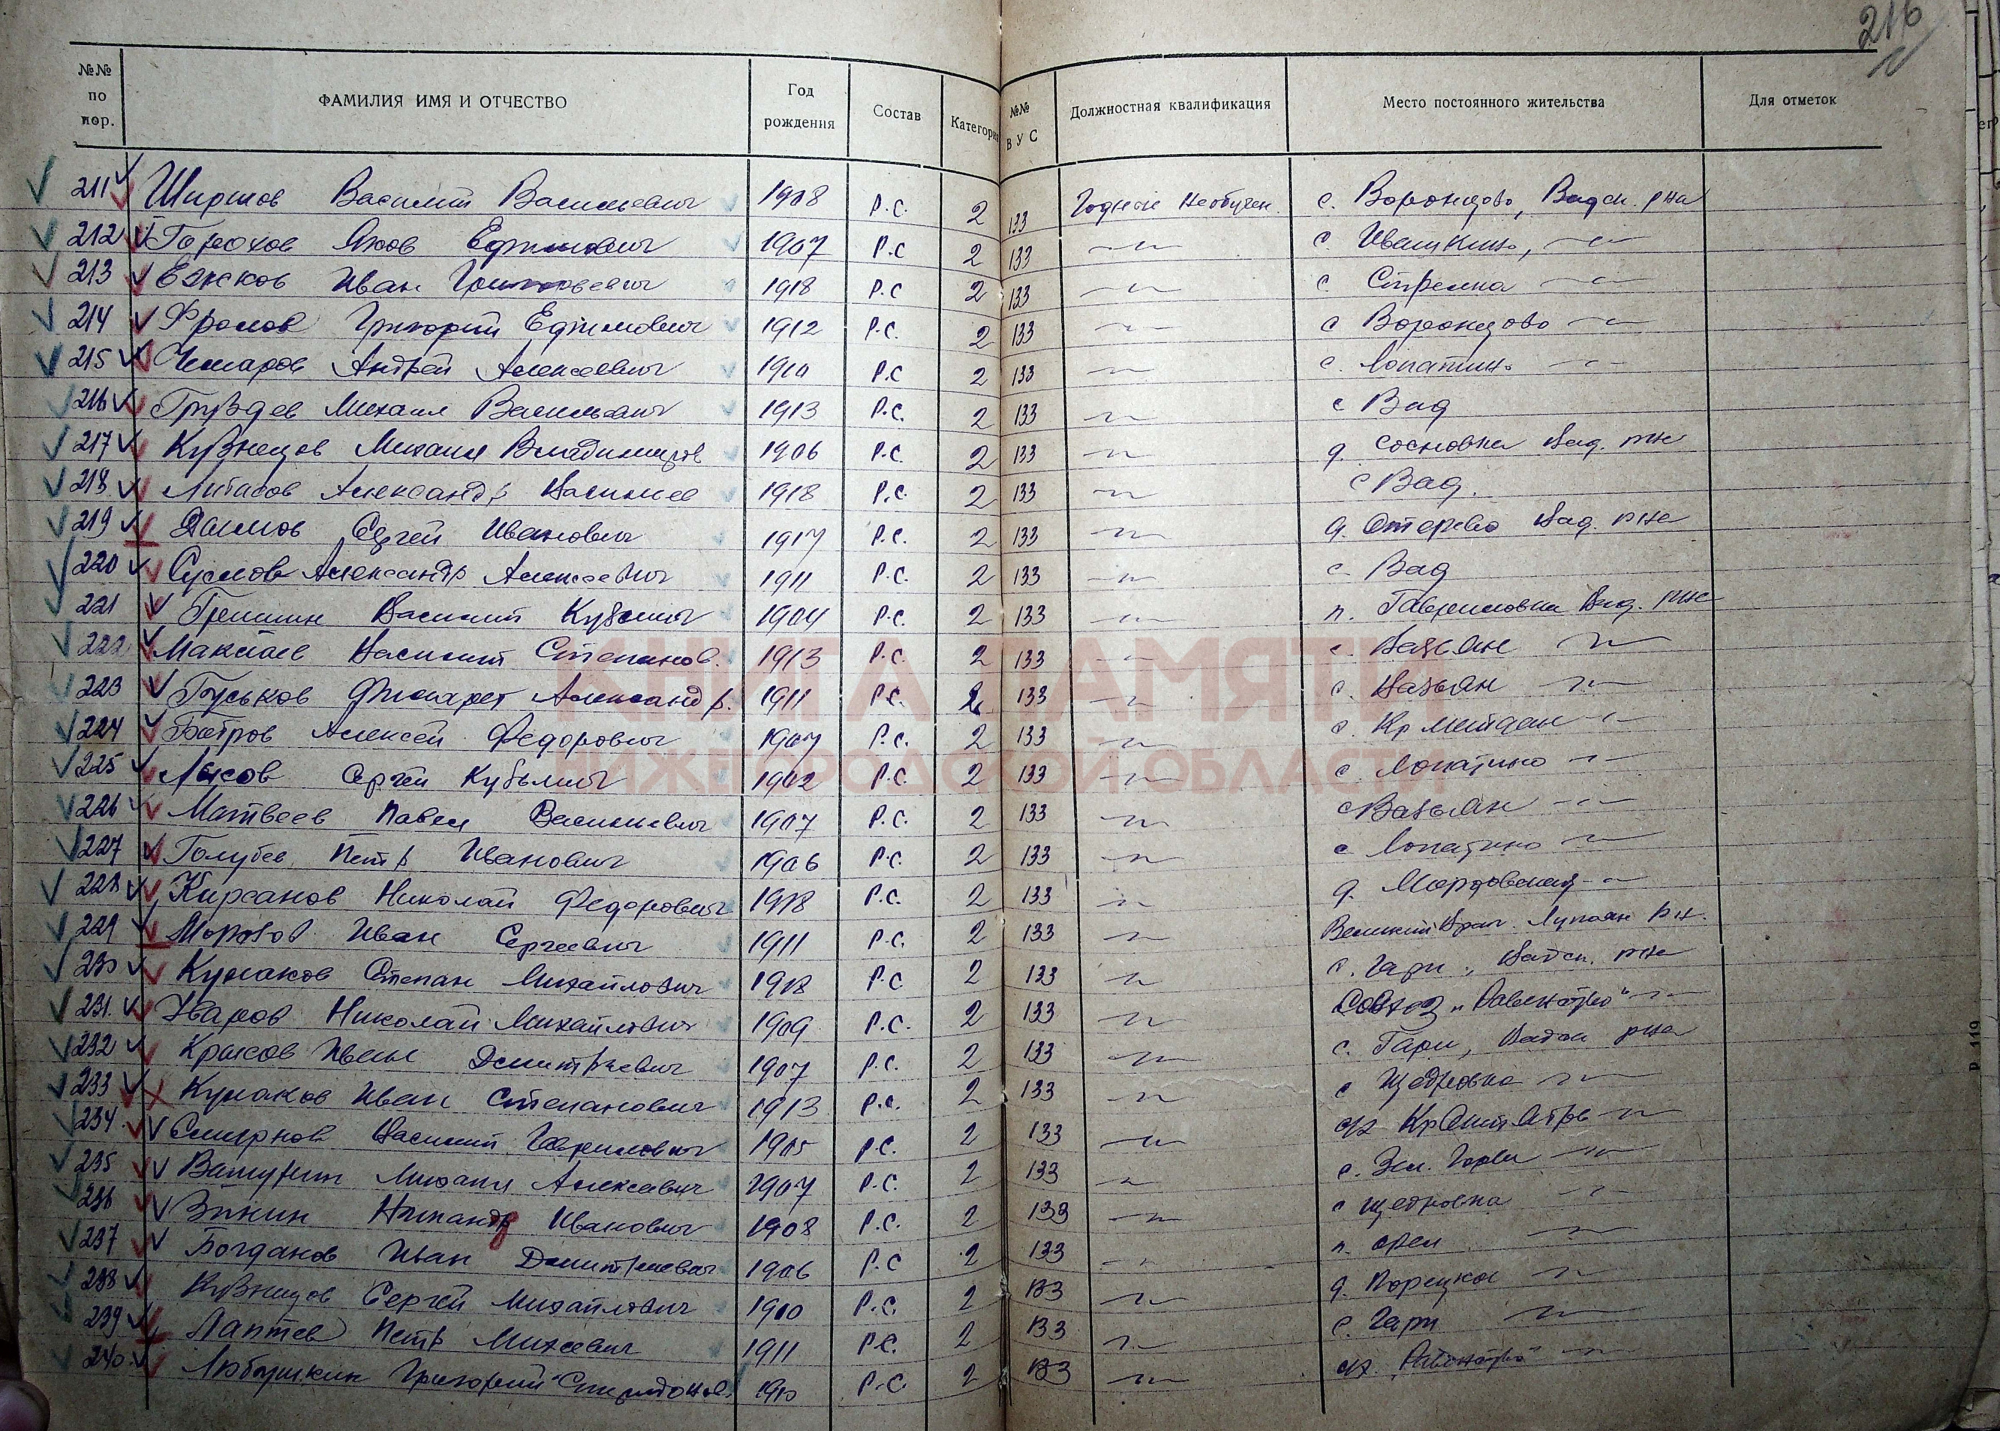 216
№№ по пор. ФАМИЛИЯ ИМЯ И ОТЧЕСТВО Год рождения Состав Категория №№ ВУС Должностная квалификация Место постоянного жительства Для отметок
211 Ширшов Василий Васильевич 1908 Р.С. 2 133 Годные необучен. с. Воронцово, Вадск. р-на
212 Горохов Яков Ефимович 1907 Р.С 2 133 —"— с. Ивашкино, —"—
213 Ежков Иван Григорьевич 1918 Р.С 2 133 —"— с. Стрелка —"—
214 Фролов Григорий Ефимович 1912 Р.С. 2 133 —"— с Воронцово —"—
215 Чемаров Андрей Алексеевич 1910 Р.С 2 133 —"— с. Лопатино —"—
216 Груздев Михаил Васильевич 1913 Р.С. 2 133 —"— с Вад
217 Кузнецов Михаил Владимиров 1906 Р.С. 2 133 —"— д. Сосновка Вад. рне
218 Александр Василиев 1918 Р.С. 2 133 —"— с Вад.
219 Сергей Иванович 1917 Р.С. 2 133 —"— д. Отерево Вад. рне
220 Суслов Александр Алексеевич 1911 Р.С. 2 133 —"— с. Вад
221 Гришин Василий Кузьмич 1904 Р.С. 2 133 —"— п. Гавриловка Вад. рне
222 Василий Степанов. 1913 Р.С. 2 133 —"— с. Вазьян —"—
223 Гуськов Филарет Александр. 1911 Р.С. 2 133 —"— с. Вазьян —"—
224 Алексей Федорович 1907 Р.С. 2 133 —"— с. Кр Мейдан —"—
225 Лысов Сергей Кузьмич 1902 Р.С 2 133 —"— с. Лопатино —"—
226 Матвеев Павел Васильевич 1907 Р.С. 2 133 —"— с Вазьян —"—
227 Голубев Петр Иванович 1906 Р.С. 2 133 —"— с Лопатино —"—
228 Кирсанов Николай Федорович 1918 Р.С. 2 133 —"— д. Мордовская —"—
229 Морозов Иван Сергеевич 1911 Р.С. 2 133 —"— Великий Враг.
230 Кулаков Степан Михайлович 1918 Р.С 2 133 —"— с. Гари, Вадск. рне
231. Уваров Николай Михайлович 1909 Р.С. 2 133 —"— Совхоз „Равенство" —"—
232 Крысов Иван Дмитриевич 1907 Р.С. 2 133 —"— с. Гари, Вадск рна
233 Кулаков Иван Степанович 1913 Р.С. 2 133 —"— с Щедровка —"—
234. Смирнов Василий Гаврилович 1905 Р.С. 2 133 —"—
235 Михаил Алексеевич 1907 Р.С. 2 133 —"— с. Зел. Горы —"—
236 Зикин Никандр Иванович 1908 Р.С. 2 133 —"— с Щедровка —"—
237 Богданов Иван Дмитриевич 1906 Р.С 2 133 —"— п. —"—
238 Кузнецов Сергей Михайлович 1910 Р.С. 2 133 —"— д. —"—
239 Лаптев Петр Михеевич 1911 Р.С. 2 133 —"— с. Гари —"—
240. Любушкин Григорий Спиридонов. 1910 Р.С 2 133 —"— „Равенство" —"—
КНИГА ПАМЯТИ
НИЖЕГОРОДСКОЙ ОБЛАСТИ